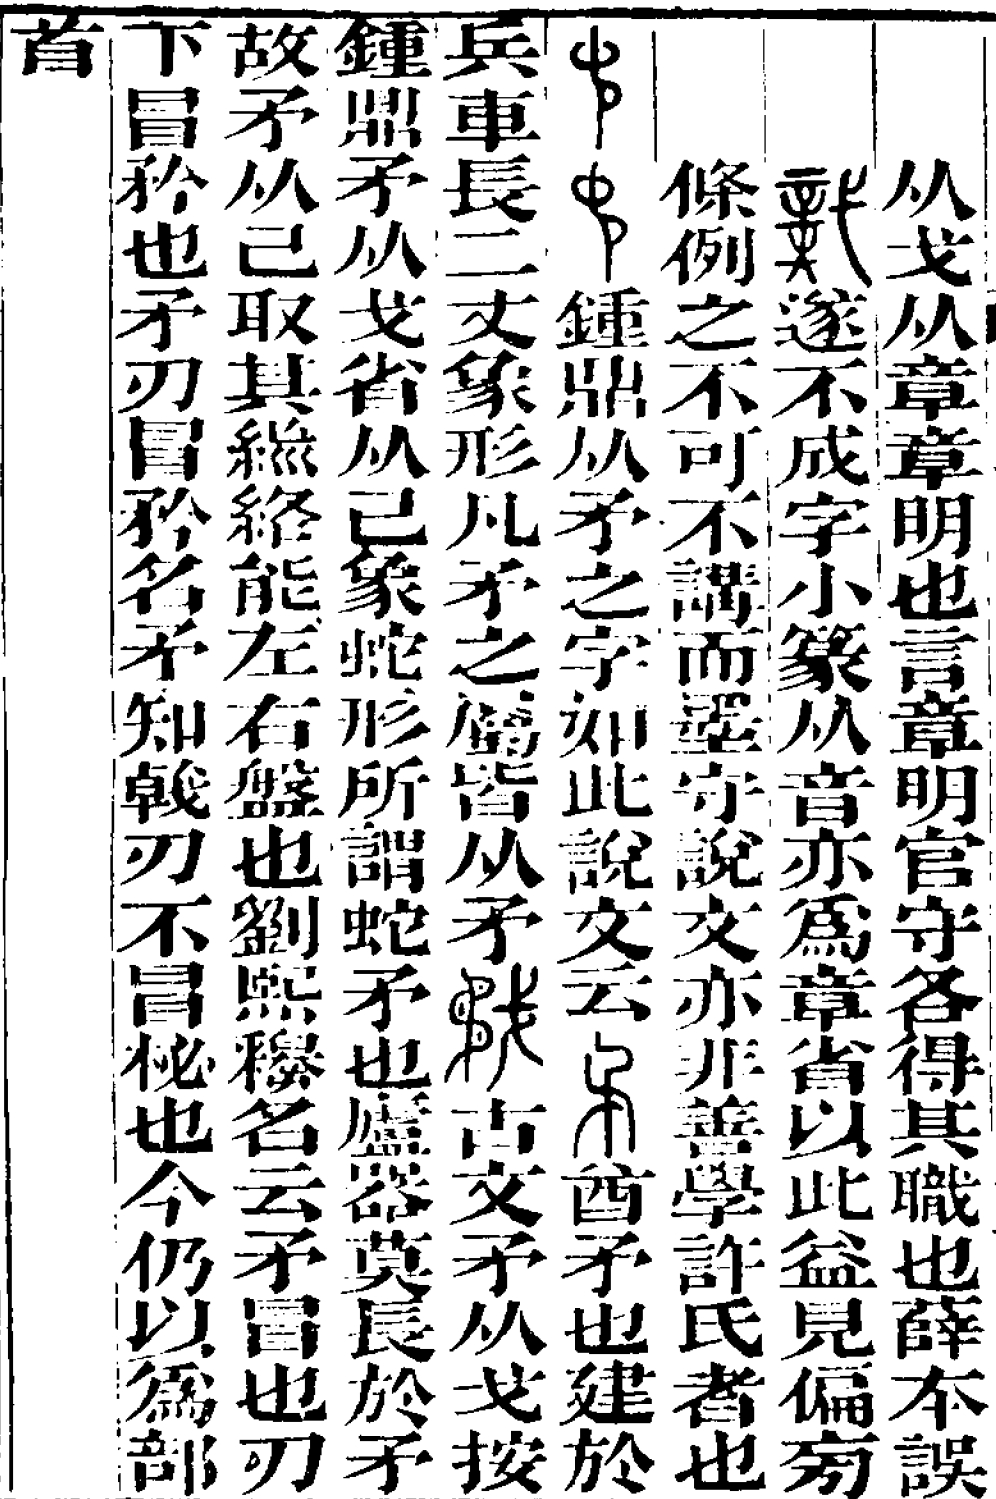 从戈从章章明也言章明官守各得其職也薛本誤
遂不成字小篆从音亦爲章省以此益見偏旁
條例之不可不講而墨守說文亦非善學許氏者也
鍾鼎从矛之字如此說文云酋矛也建於
兵車長二丈象形凡矛之屬皆从矛古文矛从戈按
鍾鼎矛从戈省从己象蛇形所謂蛇矛也廬器莫長於矛
故矛从己取其縱絡能左右盤也劉熙釋名云矛冒也刃
下冒矜也矛刃冒矜名矛知戟刃不冒柲也今仍以爲部
首